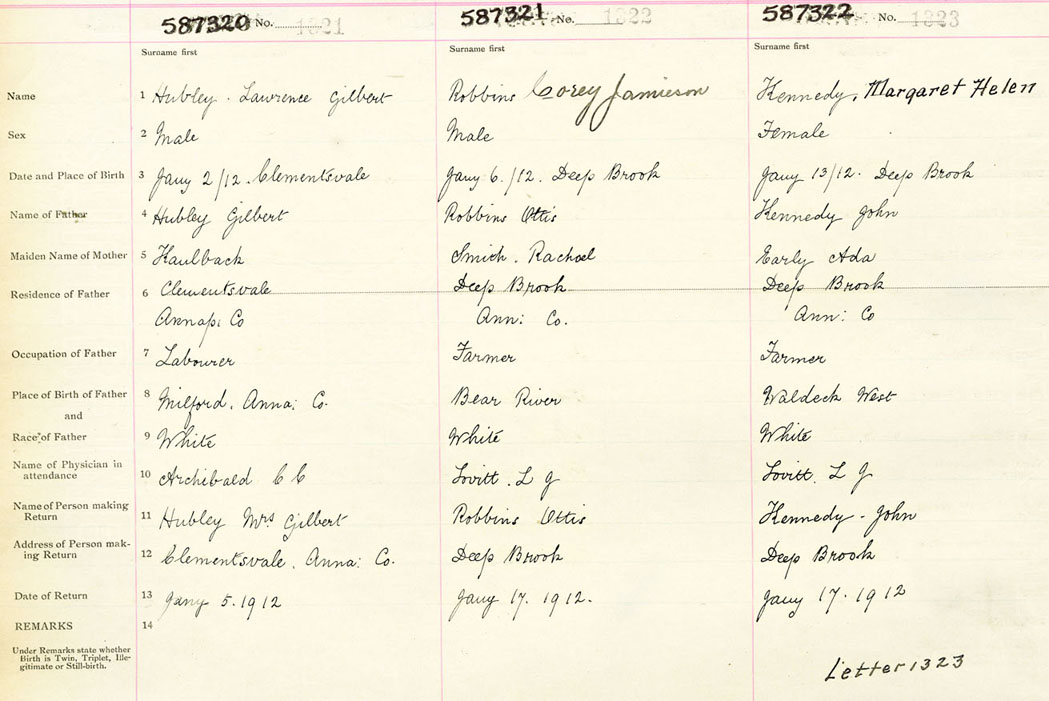 587320 No. 1321 587321 No. 1322 587322 No. 1323
Surname first Surname first Surname first
Name 1 Hubley. Lawrence Gilbert Robbins Corey Jamieson Kennedy, Margaret Helen
Sex 2 Male Male Female
Date and Place of Birth 3 Jany 2/12. Clementsvale Jany 6./12. Deep Brook Jany 13/12. Deep Brook
Name of Father 4 Hubley Gilbert Robbins Ottis Kennedy John
Maiden Name of Mother 5 Kaulback Smich. Rachael Early Ada
Residence of Father 6 Clementsvale Deep Brook Deep Brook
Annap: Co Ann: Co. Ann: Co
Occupation of Father 7 Labourer Farmer Farmer
Place of Birth of Father 8 Milford. Anna: Co. Bear River Waldeck West
and
Race of Father 9 White White White
Name of Physician in
attendance 10 Archibald C C Lovitt. L J Lovitt. L J
Name of Person making
Return 11 Hubley Mrs Gilbert Robbins Ottis Kennedy - John
Address of Person mak-
ing Return 12 Clementsvale. Anna: Co. Deep Brook Deep Brook
Date of Return 13 Jany 5. 1912 Jany 17. 1912. Jany 17. 1912
REMARKS 14
Under Remarks state whether
Birth is Twin, Triplet, Ille-
gitimate or Still-birth.
Letter 1323